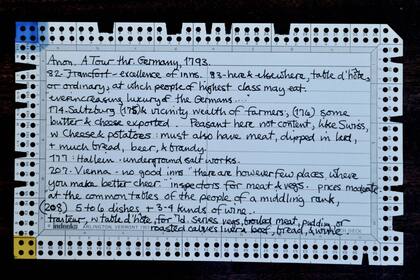 Anon. A Tour thr. Germany, 1793.
82- Frankfort - excellence of inns. 83- here & elsewhere, table d'hôte,
or ordinary, at which people of highest class may eat.
everincreasing luxury of the Germans...
174. Saltzburg (175) & vicinity wealth of farmers; (176) some
butter & cheese exported. Peasant here not content, like Swiss,
w Cheese & potatoes: must also have meat, dipped in lard,
+ much bread, beer, & brandy.
177: Hallein - underground salt works.
207. Vienna - no good inns "there are however few places where
you make better cheer" inspectors for meat & vegs. prices moderate
at the common tables of the people of a middling rank,
(208) 5 to 6 dishes + 3-4 kinds of wine.
traiteur, w table d'hôte, for 7d. serves vegs, broiled meat, pudding, or
roasted calves liver & beef, bread, & wine
indecks ARLINGTON, VERMONT DECK